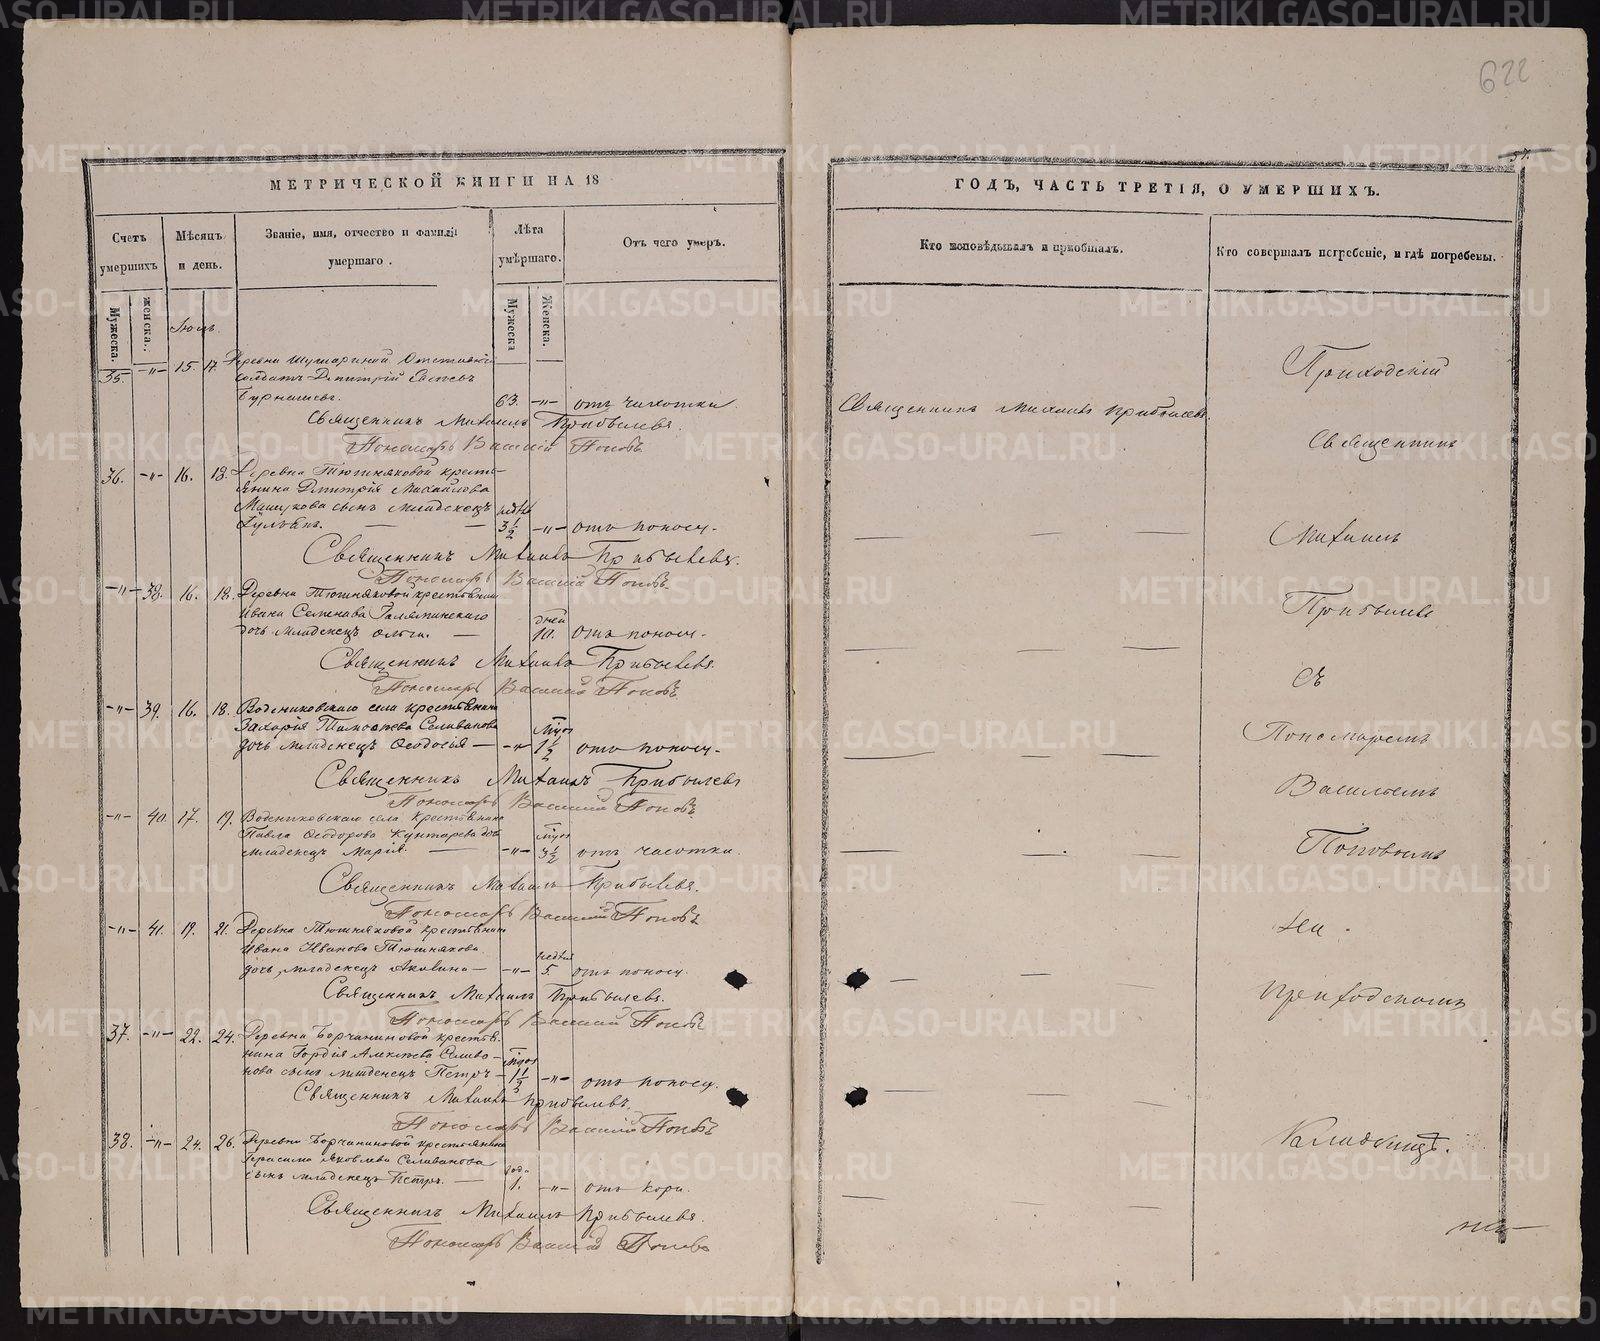 622
57.
МЕТРИЧЕСКОЙ КНИГИ НА 18
ГОДЪ, ЧАСТЬ ТРЕТІЯ, О УМЕРШИХЪ.
Счетъ умершихъ
Мѣсяцъ и день.
Званіе, имя, отчество и фамилія умершаго.
Лѣта умѣршаго.
Отъ чего умеръ.
Кто исповѣдывалъ и пріобщалъ.
Кто совершалъ погребеніе, и гдѣ погребены.
Мужеска.
Женска.
Мужеска
Женска.
35. -"- 15. 17. Деревни
солдатъ Дмитрій
63. -"- отъ чихотки.
Священникъ Михаилъ Прибылевъ.
Пономарь Василій Поповъ
36. -"- 16. 18. Деревни Тюшняковой кресть-
янина Дмитрія Михайлова
сынъ младенецъ
3 1/2 -"- отъ поносу.
Священникъ Михаилъ Прибылевъ.
Пономарь Василій Поповъ
-"- 38. 16. 18. Деревни Тюшняковой крестьянина
Ивана Семенова
дочь младенецъ Ольга. дней 10. отъ поносу.
Священникъ Михаилъ Прибылевъ.
Пономарь Василій Поповъ
-"- 39. 16. 18. Водениковскаго села крестьянина
Захарія Тимофѣева Селиванова
дочь младенецъ Ѳеодосія -"- 1 1/2 отъ поносу.
Священникъ Михаилъ Прибылевъ
Пономарь Василій Поповъ
-"- 40. 17. 19. Водениковскаго села крестьянина
Павла Ѳеодорова дочь
младенецъ Марія. -"- 3 1/2 отъ чахотки.
Священникъ Михаилъ Прибылевъ.
Пономарь Василій Поповъ
-"- 41. 19. 21. Деревни Тюшняковой крестьянина
Ивана Иванова Тюшнякова
дочь младенецъ Акилина -"- 5. отъ поносу.
Священникъ Михаилъ Прибылевъ.
Пономарь Василій Поповъ
37. -"- 22. 24. Деревни Борчаниновой крестья-
нина Гордія Алексѣева Селива-
нова сынъ младенецъ Петръ 1 1/2 -"- отъ поносу.
Священникъ Михаилъ Прибылевъ.
Пономарь Василій Поповъ
38. -"- 24. 26. Деревни Борчаниновой крестьянина
Герасима Яковлева Селиванова
сынъ младенецъ Петръ. года 1. -"- отъ кори.
Священникъ Михаилъ Прибылевъ.
Пономарь Василій Поповъ
Священникъ Михаилъ Прибылевъ
Приходскій
Священникъ
Михаилъ
Прибылевъ
Съ
Пономаремъ
Василіемъ
Поповымъ
На
приходскомъ
кладбищѣ.
METRIKI.GASO-URAL.RU